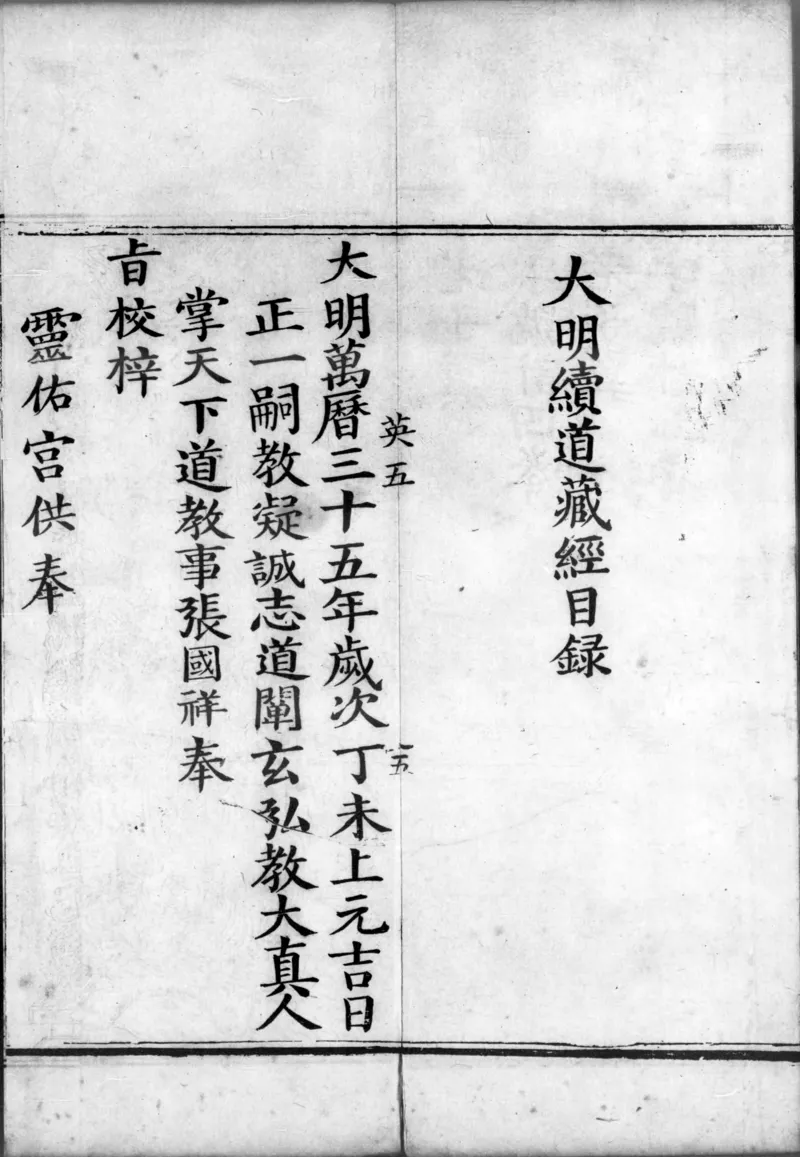 大明續道藏經目録
英五
十五
大明萬曆三十五年歲次丁未上元吉日
正一嗣教凝誠志道闡玄弘教大真人
掌天下道教事張國祥奉
旨校梓
靈佑宮供奉